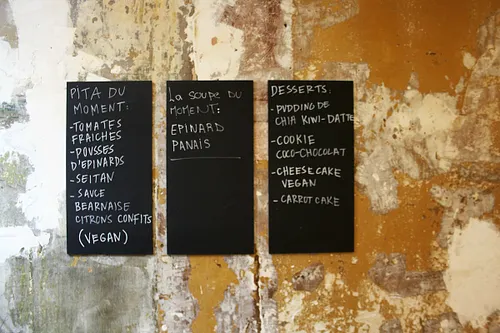 PITA DU
MOMENT:
-TOMATES
FRAICHES
-POUSSES
D'EPINARDS
-SEITAN
-SAUCE
BEARNAISE
CITRONS CONFITS
(VEGAN)
La SOUPE DU
MOMENT:
EPINARD
PANAIS
DESSERTS:
-PUDDING DE
CHIA KIWI-DATTE
-COOKIE
COCO-CHOCOLAT
-CHEESECAKE
VEGAN
-CARROTCAKE